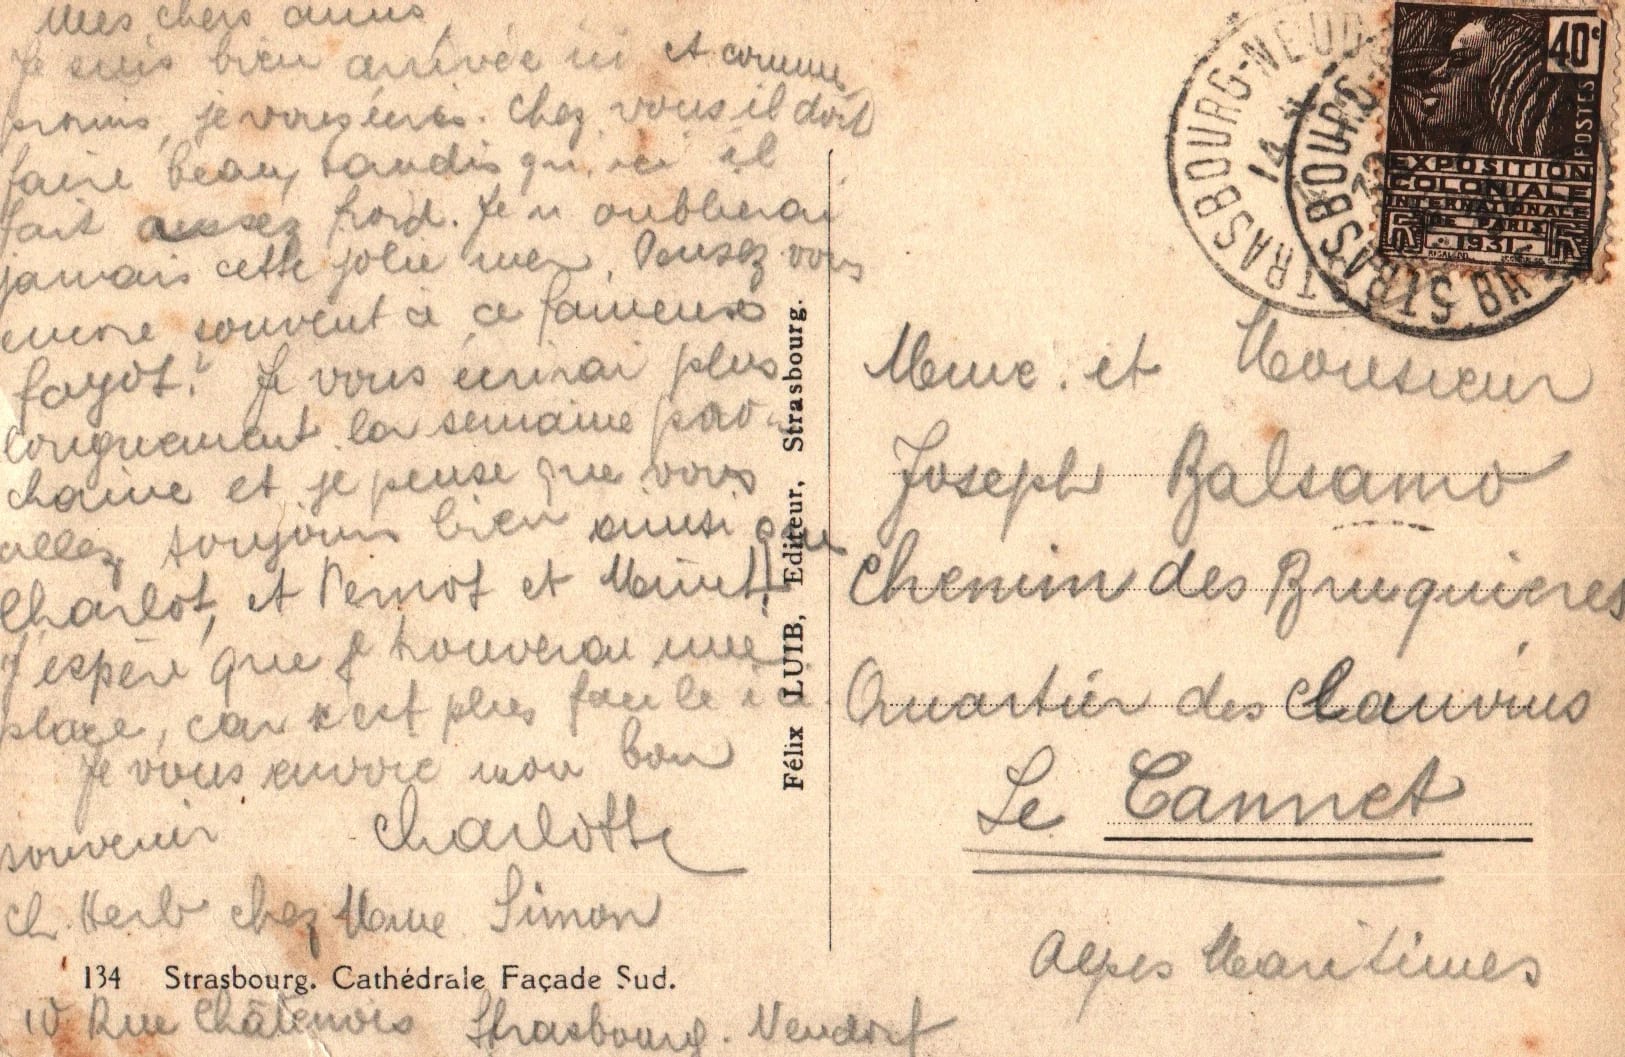 Mes chers amis,
Je suis bien arrivée ici et comme
promis, je vous écris. Chez vous il doit
faire beau, tandis qu'ici il
fait assez froid. Je n'oublierai
jamais cette jolie mer. Pensez vous
encore souvent à ce fameux
fayot? Je vous écrirai plus
longuement la semaine pro-
chaine et je pense que vous
allez toujours bien ainsi que
Charlot, et Pernot et
J'espère que je trouverai une
place, car c'est plus facile ici
Je vous envoie mon bon
souvenir Charlotte
Ch. Herb chez Mme Simon
134 Strasbourg. Cathédrale Façade Sud.
10 Rue Châtenois Strasbourg. Neudorf
Félix LUIB, Editeur, Strasbourg.
STRASBOURG-NEUD
14
STRASBOURG
40c
POSTES
EXPOSITION
COLONIALE
INTERNATIONALE
DE PARIS
1931
Mme. et Monsieur
Joseph Balsamo
Chemin des Bruguieres
Quartier des
Le Cannet
Alpes Maritimes